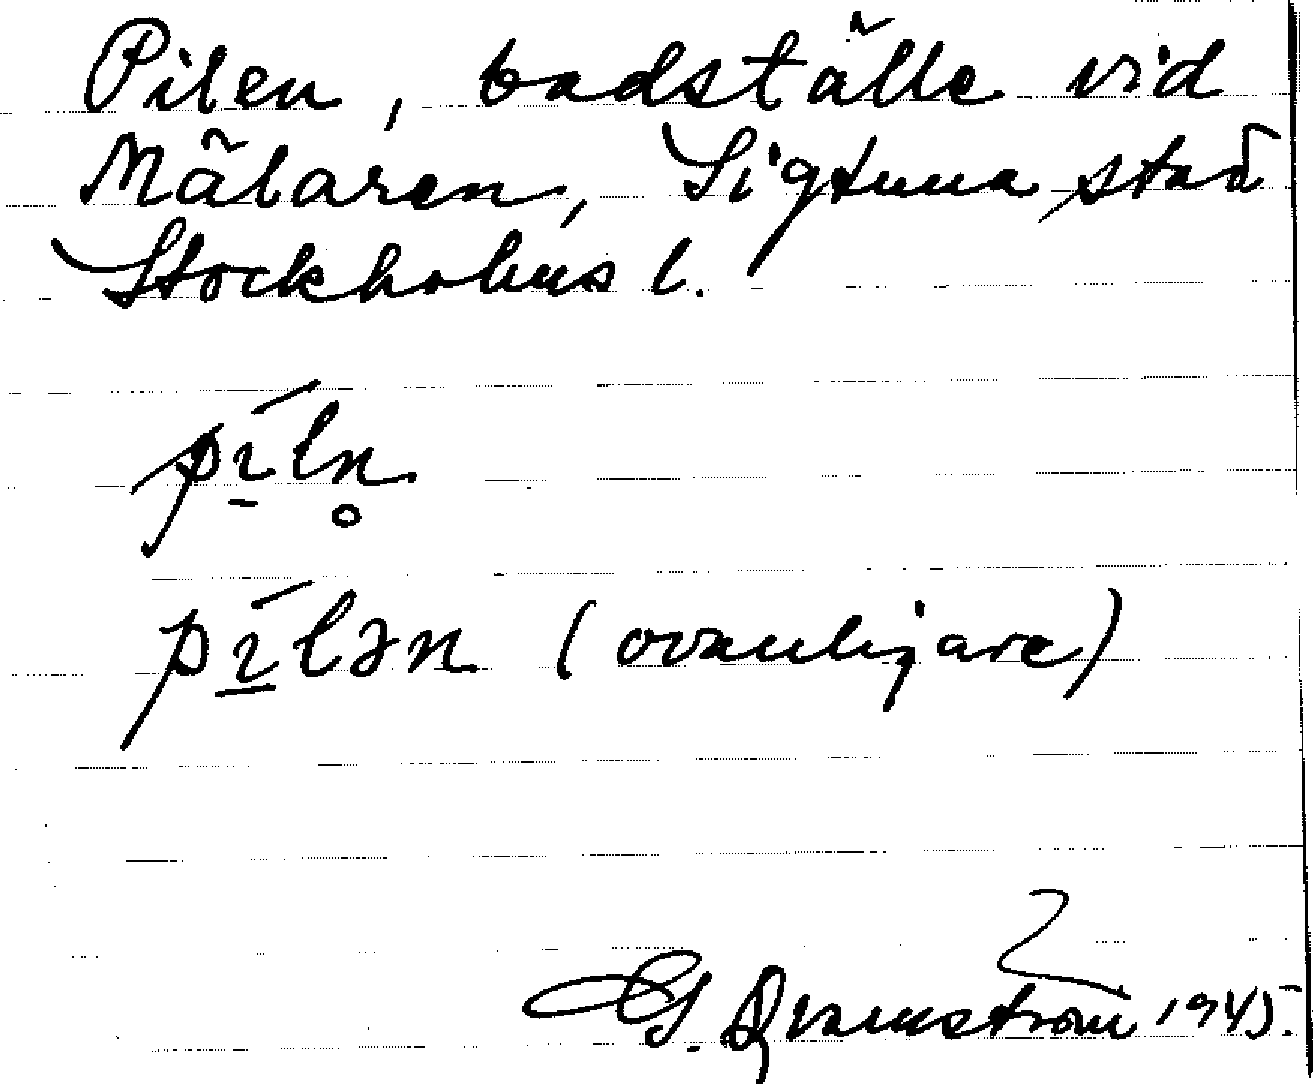 Pilen, badställe vid
Mälaren, Sigtuna stad
Stockholms l.
pí̱ln̥
pí̱lən (ovanligare)
G. Qvarnström 1945.